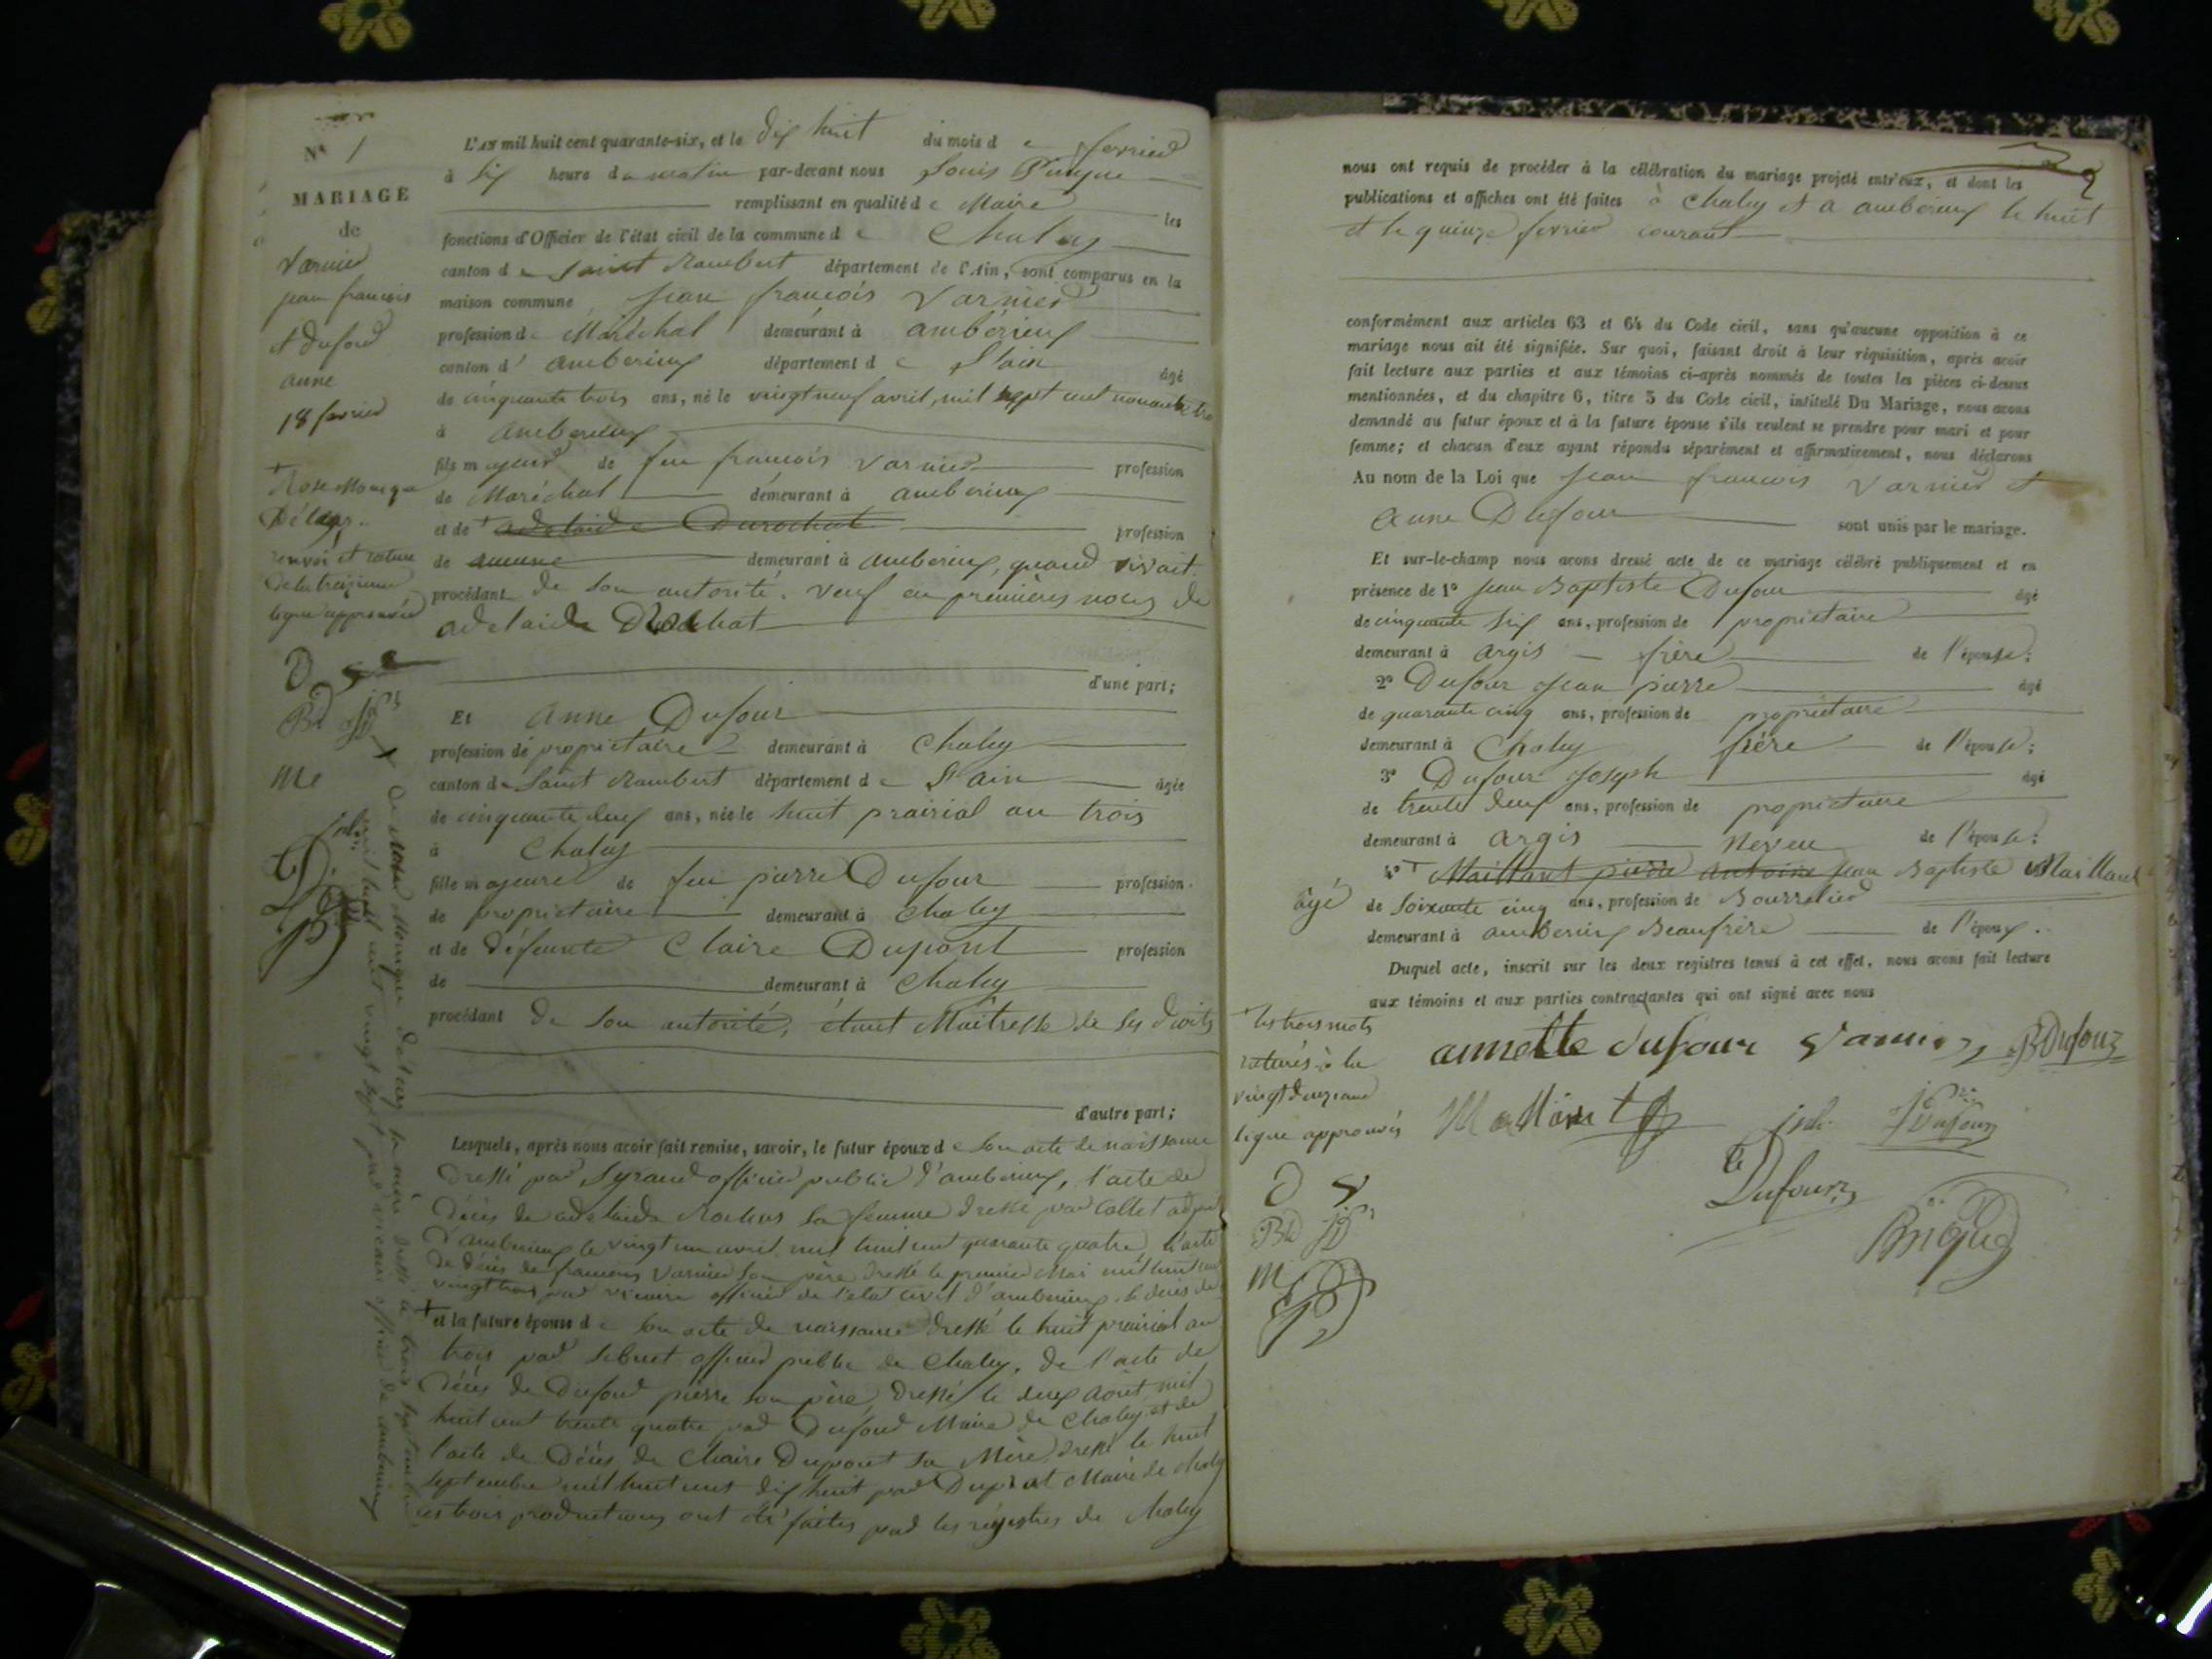 N° 1
MARIAGE
de
Varnier
jean françois
et dufour
anne
18 fevrier
Rose Mongin
Délas
renvoi et rature
de la treizieme
ligne approuvée
D
Bd JD
Md
L'AN mil huit cent quarante-six, et le dix huit du mois de fevrier
à six heure du matin par-devant nous Louis
remplissant en qualité de Maire les
fonctions d'Officier de l'état civil de la commune de Chaley
canton de Saint Rambert département de l'Ain, sont comparus en la
maison commune Jean françois Varnier
profession de Maréchal demeurant à ambérieux
canton d' amberieux département de l'ain âgé
de cinquante trois ans, né le vingt neuf avril mil sept cent nonante trois
à amberieux
fils majeur de feu francois Varnier profession
de Maréchal demeurant à amberieux
et de + adelaide Durochat profession
de aucune demeurant à amberieux, quand vivait
procédant de son autorité. veuf en premières noces de
adelaide Rochat
d'une part;
Et Anne Dufour
profession de propriétaire demeurant à Chaley
canton de Saint Rambert département de l'ain âgée
de cinquante deux ans, née le huit prairial an trois
à Chaley
fille majeure de feu pierre Dufour profession
de propriétaire demeurant à Chaley
et de défeunte Claire Dupont profession
de demeurant à Chaley
procédant de son autorité, étant Maîtresse de ses droits
d'autre part;
Lesquels, après nous avoir fait remise, savoir, le futur époux de son acte de naissance
dressé par Syraud officier public d'amberieux, l'acte de
décès de adelaide Rochas sa femme dressé par Collet adjoint
d'amberieux le vingt un avril mil huit cent quarante quatre, l'acte
de décès de francois Varnier son père dressé le premier Mai mil huit cent
vingt trois par officier de l'etat civil d'amberieux. le décès de
+ et la future épouse de son acte de naissance dressé le huit prairial an
trois par officier public de Chaley, de l'acte de
décès de Dufour pierre son père, dressé le deux Août mil
huit cent trente quatre par Dufour Maire de Chaley et de
l'acte de Décès de Claire Dupont sa Mère dressé le huit
septembre mil huit cent dix huit par Maire de Chaley
ces trois productions ont été faites par les régistres de Chaley
nous ont requis de procéder à la célébration du mariage projeté entr'eux, et dont les
publications et affiches ont été faites à Chaley et a amberieux le huit
et le quinze fevrier courant
conformément aux articles 63 et 64 du Code civil, sans qu'aucune opposition à ce
mariage nous ait été signifiée. Sur quoi, faisant droit à leur réquisition, après avoir
fait lecture aux parties et aux témoins ci-après nommés de toutes les pièces ci-dessus
mentionnées, et du chapitre 6, titre 5 du Code civil, intitulé Du Mariage, nous avons
demandé au futur époux et à la future épouse s'ils veulent se prendre pour mari et pour
femme; et chacun d'eux ayant répondu séparément et affirmativement, nous déclarons
Au nom de la Loi que Jean francois Varnier et
Anne Dufour sont unis par le mariage.
Et sur-le-champ nous avons dressé acte de ce mariage célébré publiquement et en
présence de 1° Jean Baptiste Dufour âgé
de cinquante six ans, profession de propriétaire
demeurant à Argis frère de l'épouse;
2° Dufour Jean pierre âgé
de quarante cinq ans, profession de propriétaire
demeurant à Chaley frère de l'épouse;
3° Dufour Joseph âgé
de trente deux ans, profession de propriétaire
demeurant à Argis Neveu de l'épouse;
4° + Maillant pierre antoine Jean Baptiste Maillant
âgé de soixante cinq ans, profession de Bourrelier
demeurant à amberieux Beaufrère de l'époux.
Duquel acte, inscrit sur les deux registres tenus à cet effet, nous avons fait lecture
aux témoins et aux parties contractantes qui ont signé avec nous
+ les trois mots
raturés à la
vingt deuxieme
ligne approuvés
D V
Bd JD
M
annette dufour Varnier BDufour
Mallant JPDufour
Dufour